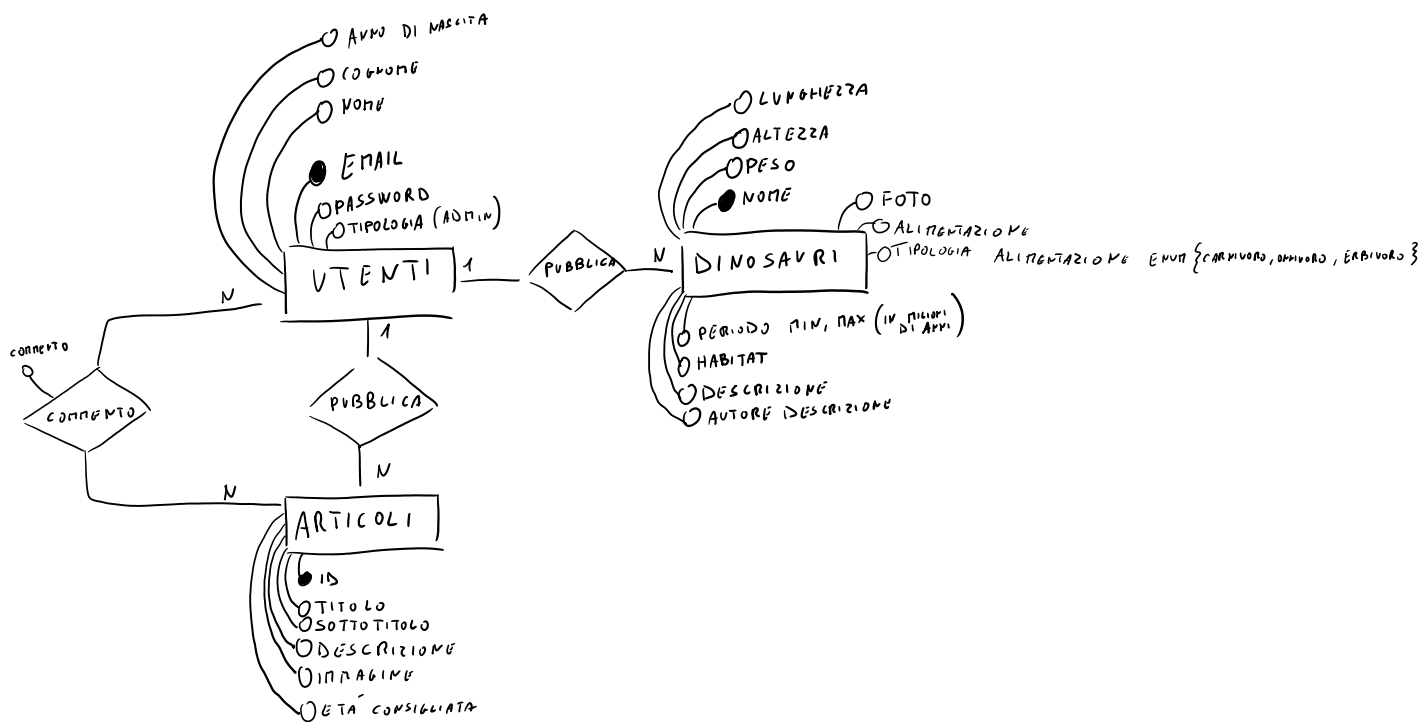 ANNO DI NASCITA
COGNOME
NOME
EMAIL
PASSWORD
TIPOLOGIA (ADMIN)
UTENTI
1
PUBBLICA
N
LUNGHEZZA
ALTEZZA
PESO
NOME
FOTO
ALIMENTAZIONE
TIPOLOGIA ALIMENTAZIONE ENUM {CARNIVORO, ONNIVORO, ERBIVORO}
DINOSAURI
PERIODO MIN, MAX (IN MILIONI
DI ANNI)
HABITAT
DESCRIZIONE
AUTORE DESCRIZIONE
N
1
COMMENTO
COMMENTO
PUBBLICA
N
N
ARTICOLI
ID
TITOLO
SOTTOTITOLO
DESCRIZIONE
IMMAGINE
ETÀ CONSIGLIATA